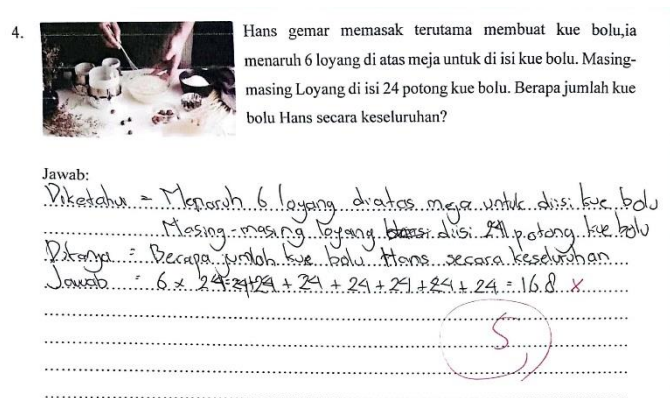 4.
Hans gemar memasak terutama membuat kue bolu,ia
menaruh 6 loyang di atas meja untuk di isi kue bolu. Masing-
masing Loyang di isi 24 potong kue bolu. Berapa jumlah kue
bolu Hans secara keseluruhan?
Jawab:
Diketahui = Menaruh 6 loyang diatas meja untuk diisi kue bolu
Masing-masing loyang diisi 24 potong kue bolu
Ditanya : Berapa jumlah kue bolu Hans secara keseluruhan
Jawab : 6 x 24=24+24 + 24 + 24 + 24 + 24 + 24 = 168 x
5